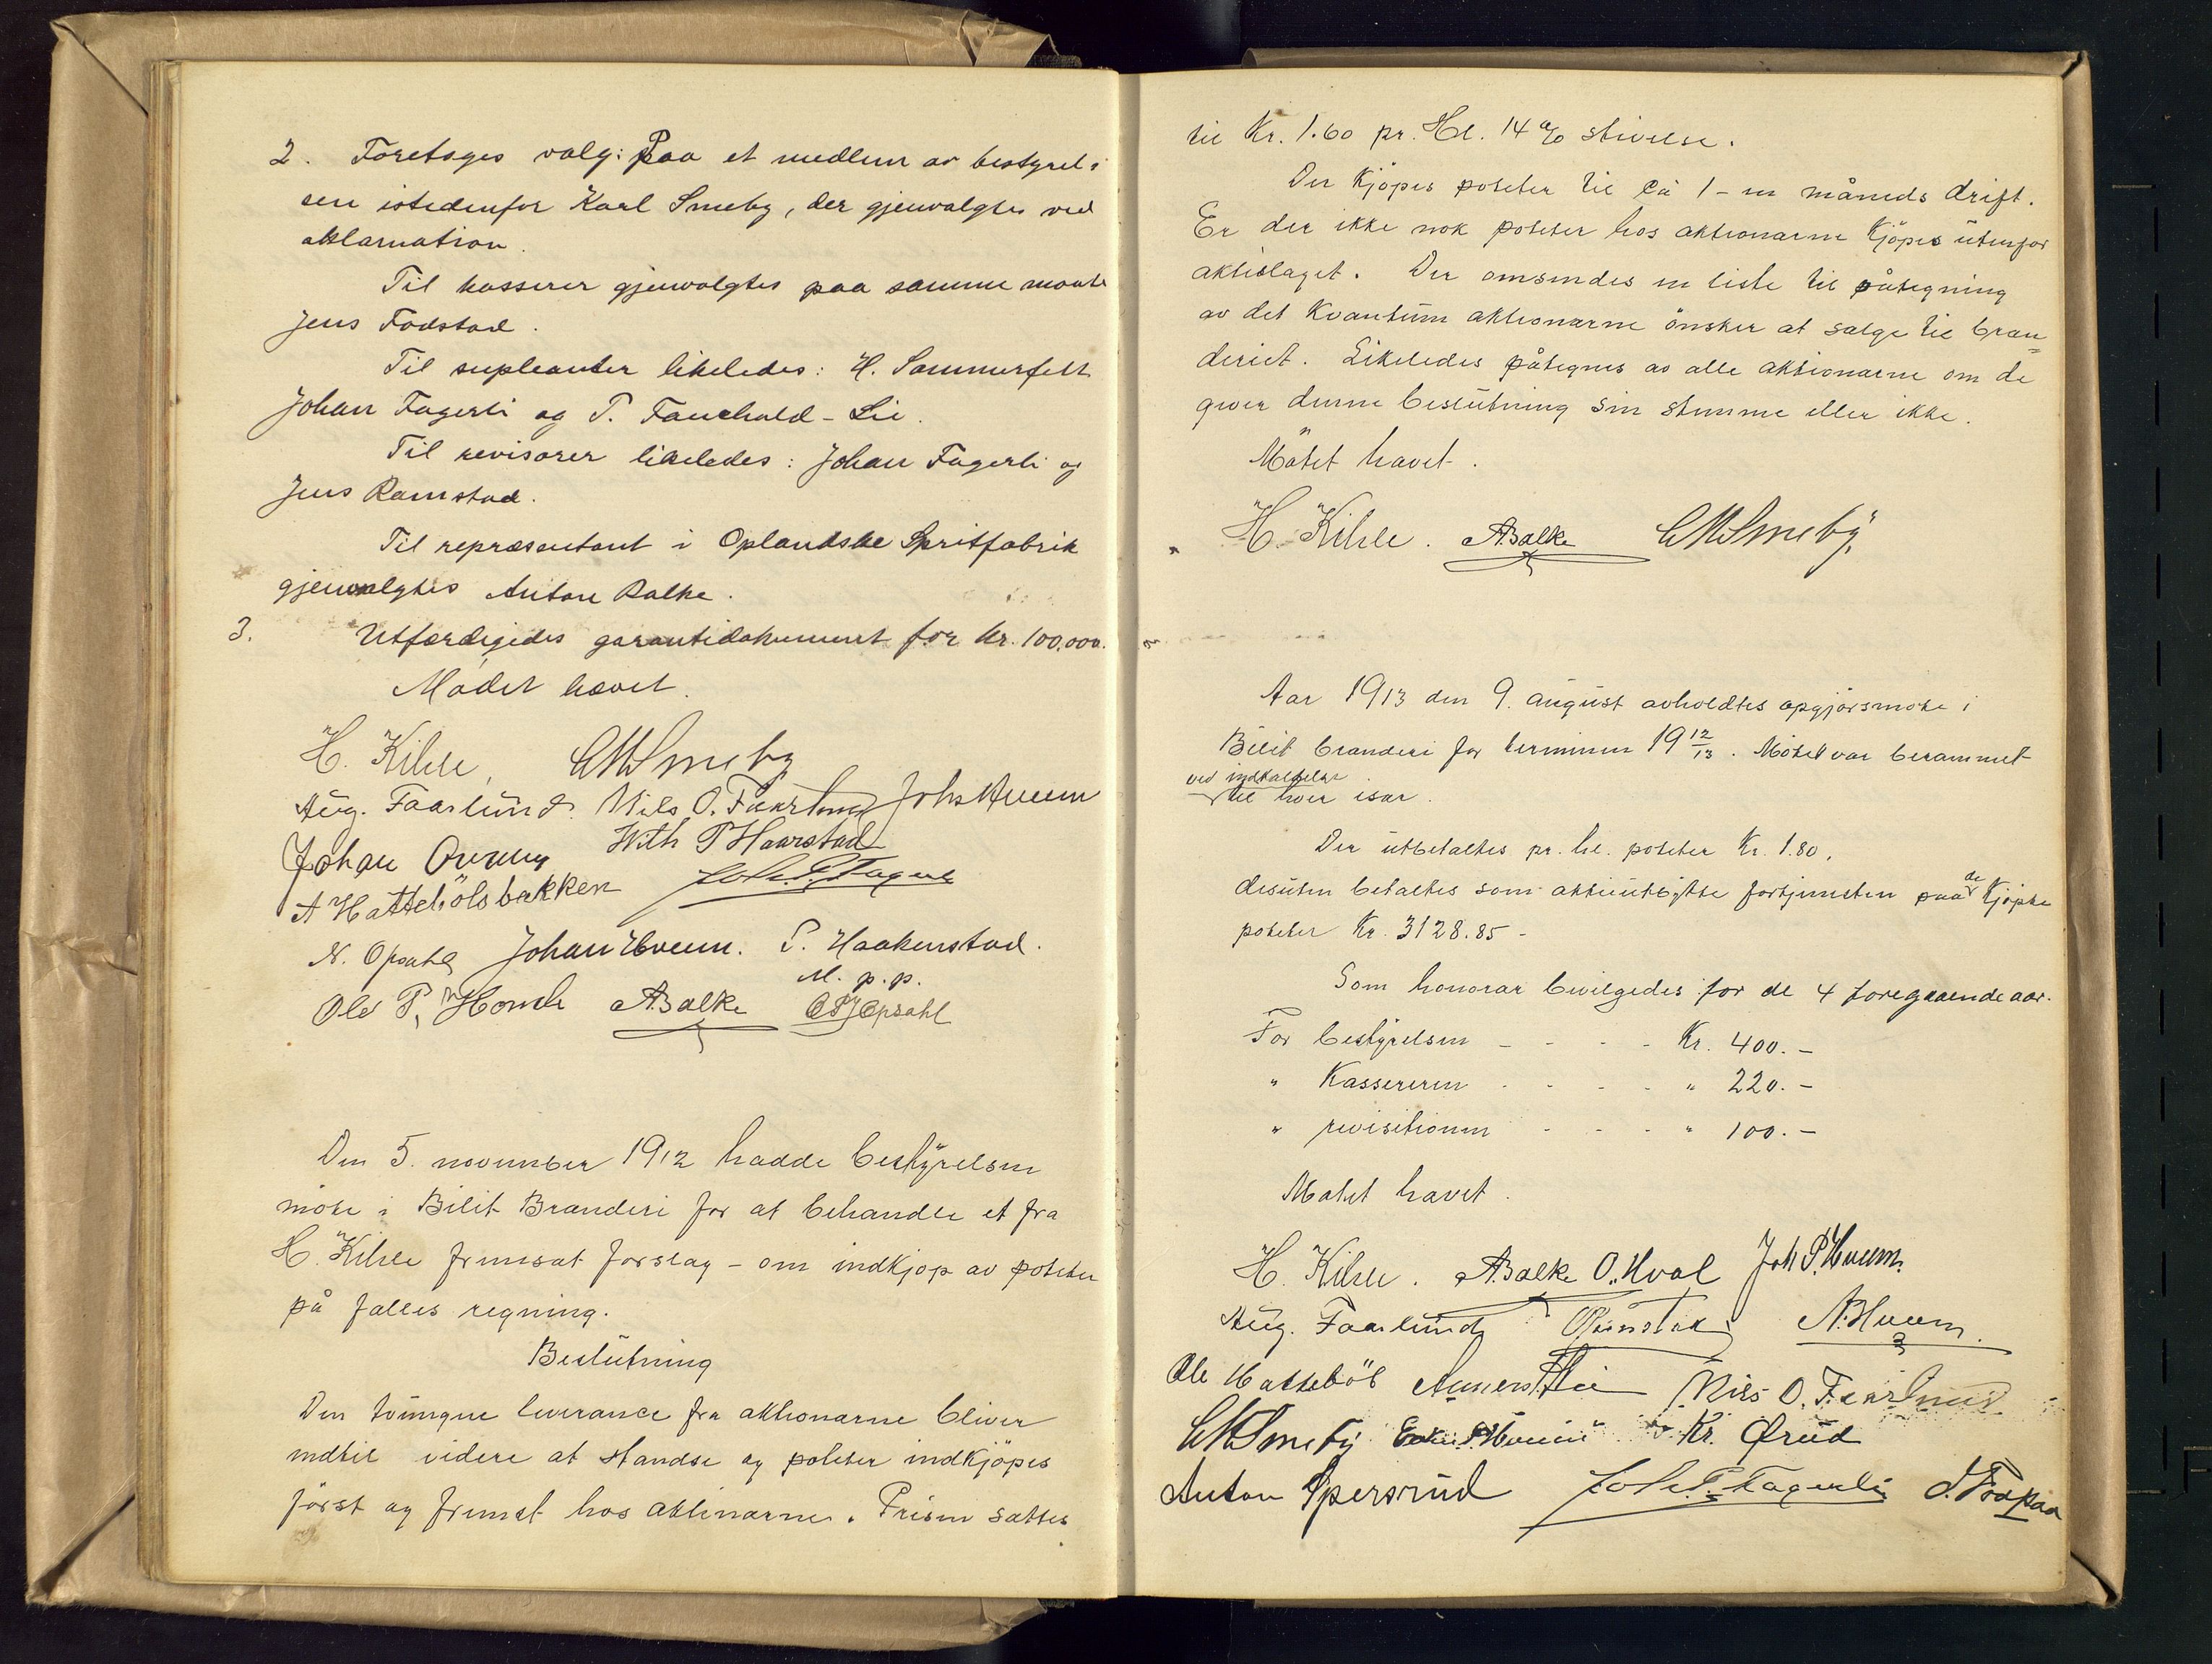 2. Foretoges valg: Paa et medlem av bestyrel-
sen istedenfor Karl Smeby, der gjenvalgtes ved
aklamation.
Til kasserer gjenvalgtes paa samme maate
Jens Fodstad.
Til supleanter likeledes: H. Sommerfelt
Johan Fagerli og P. Fauchald-Lie.
Til revisorer likeledes: Johan Fagerli og
Jens Ramstad.
Til repræsentant i Oplandske Spritfabrik
gjenvalgtes Anton Balke.
3. Utfærdigedes garantidokument for kr. 100.000.
Mødet hævet.
H. Kihle, CMSmeby
Aug. Faarlund. Nils O. Faarlund Johs Hveem
Johan With P Haarstad
A Hattebölsbakken Joh. P. Fagerli
N. Opsahl Johan Hveem. P. Haakenstad.
M. p. p.
Ole P. ABalke Opsahl
Den 5. november 1912 hadde bestyrelsen
möte i Bilit Brænderi for at behandle et fra
H. Kihle fremsat forslag - om indkjøp av poteter
på fælles regning.
Beslutning
Den tvungne leverance fra aktionærne bliver
indtil videre at standse og poteter indkjöpes
först og fremst hos aktinærne. Prisen sættes
til Kr. 1.60 pr. Hl. 14 % stivelse.
Der kjöpes poteter til ca 1-en måneds drift.
Er der ikke nok poteter hos aktionærne kjöpes utenfor
aktislaget. Der omsendes en liste til påtegning
av det kvantum aktionærne önsker at sælge til bræn=
deriet. Likeledes påtegnes av alle aktionærne om de
giver denne beslutning sin stemme eller ikke.
Mötet hævet.
H. Kihle. ABalke CMSmeby.
Aar 1913 den 9. august avholdtes opgjörsmöte i
Bilit brænderi for terminen 19 12/13. Mötet var berammet
ved indkaldelse
til hver især.
Der utbetaltes pr. hl. poteter Kr. 1.80,
desuten betaltes som aktieutbytte fortjenesten paa de kjöpte
poteter Kr. 3128.85 -
Som honorar bevilgedes for de 4 foregaaende aar.
For bestyrelsen - - - - Kr. 400.-
" Kassereren - - - - " 220.-
" revisitionen - - - " 100.-
Mötet hævet.
H. Kihle. ABalke O. Hval Joh P. Hveem.
Aug. Faarlund Ramstad A. Hveem.
Ole Hattebøl Nils O. Faarlund
CMSmeby Kr. Ørud
Anton Spersrud Joh. P. Fagerli